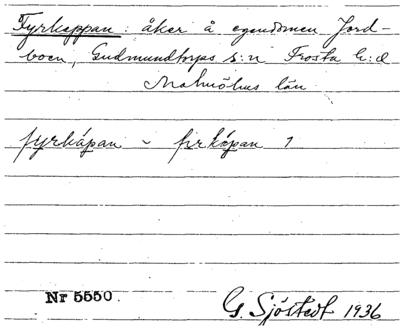 Fyrkappan: åker å egendomen Jord-
boen, Gudmundtorps s:n Frosta h:d
Malmöhus län
fyrkápan ~ firkápan 1
Nr 5550.
G. Sjöstedt 1936